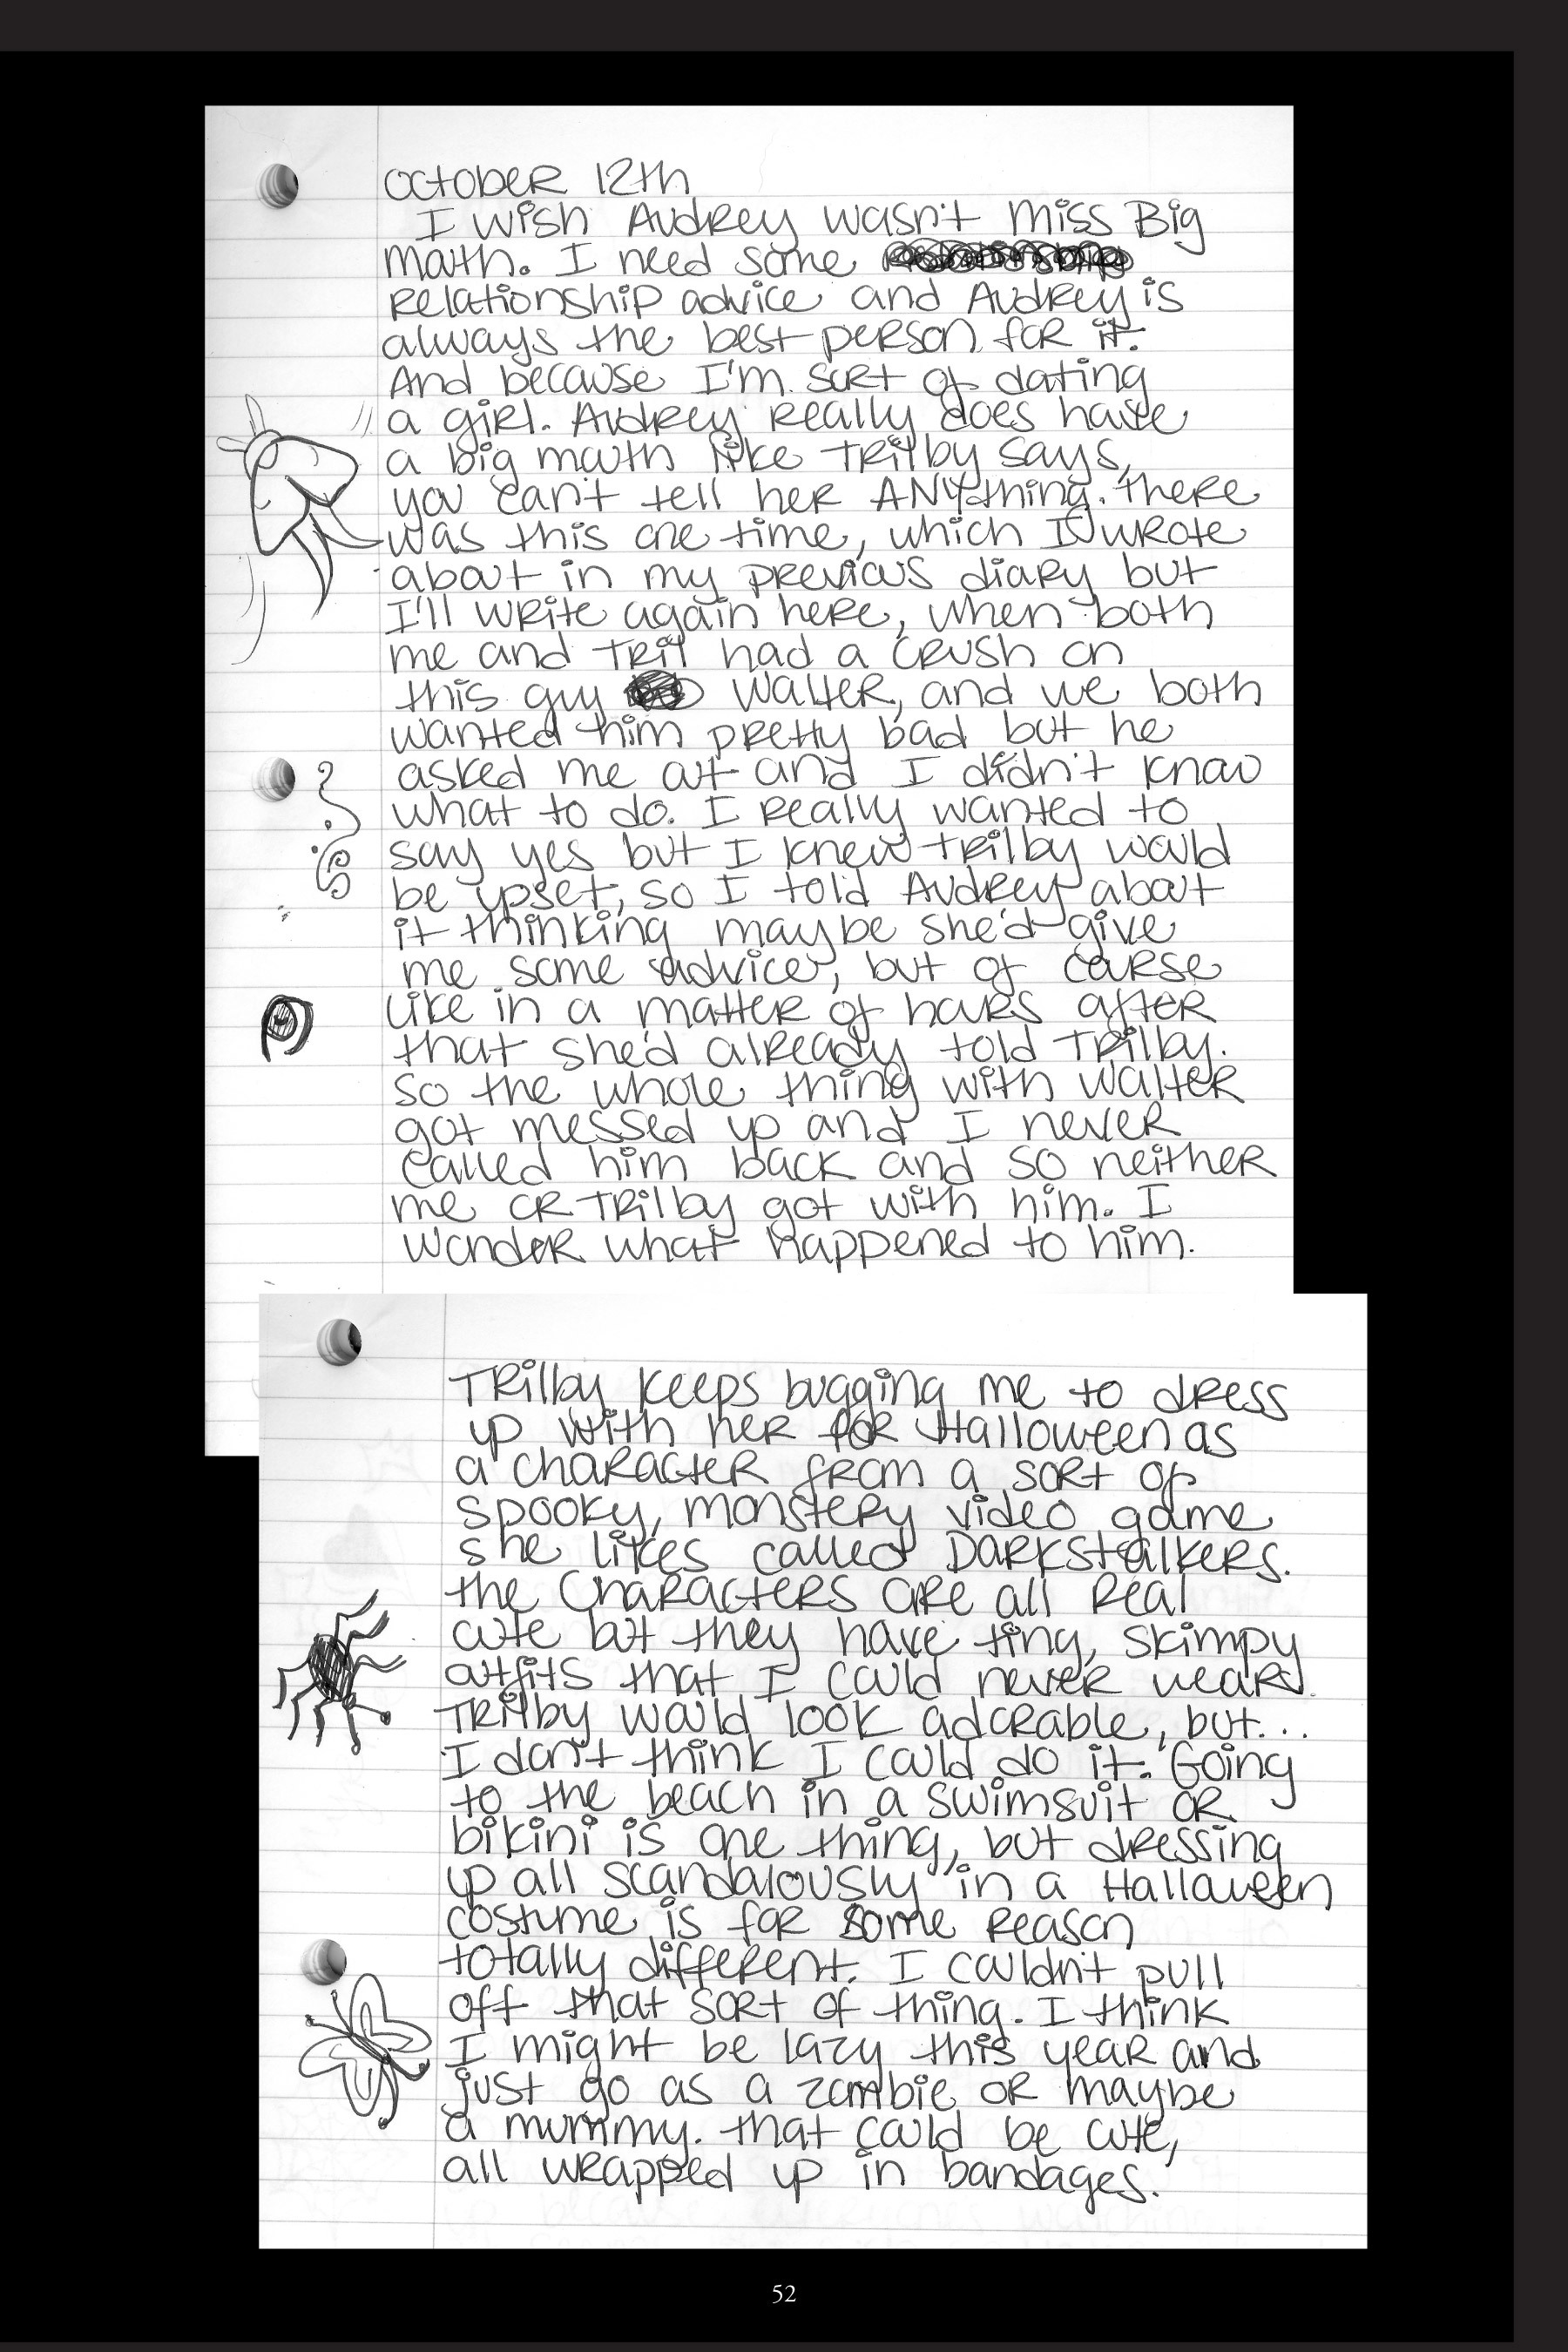 OCTOBER 12th
I wish Audrey wasn't Miss Big
Mouth. I need some
relationship advice and Audrey is
always the best person for it.
And because I'm sort of dating
a girl. Audrey really does have
a big mouth like Trilby says,
you can't tell her ANYthing. There
was this one time, which I wrote
about in my previous diary but
I'll write again here, when both
me and Tril had a crush on
this guy Walter, and we both
wanted him pretty bad but he
asked me out and I didn't know
what to do. I really wanted to
say yes but I knew Trilby would
be upset, so I told Audrey about
it thinking maybe she'd give
me some advice, but of course
like in a matter of hours after
that she'd already told Trilby.
So the whole thing with Walter
got messed up and I never
called him back and so neither
me or Trilby got with him. I
wonder what happened to him.
Trilby keeps bugging me to dress
up with her for Halloween as
a character from a sort of
spooky, monstery video game
she likes called Darkstalkers.
The characters are all real
cute but they have tiny, skimpy
outfits that I could never wear.
Trilby would look adorable, but...
I don't think I could do it. Going
to the beach in a swimsuit or
bikini is one thing, but dressing
up all scandalously in a Halloween
costume is for some reason
totally different. I couldn't pull
off that sort of thing. I think
I might be lazy this year and
just go as a zombie or maybe
a mummy. That could be cute,
all wrapped up in bandages.
52